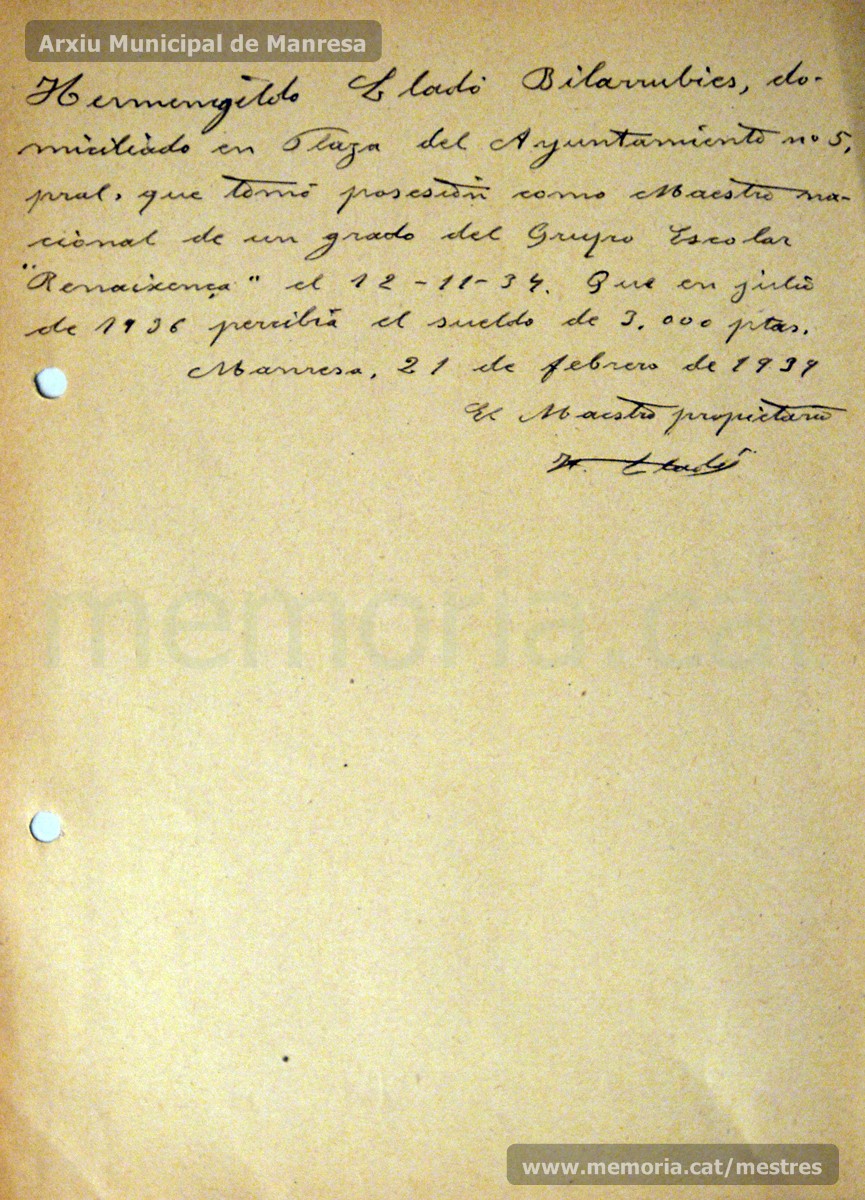 Arxiu Municipal de Manresa
Hermenegildo Lladó Bilarrubies, do-
miciliado en Plaza del Ayuntamiento nº 5,
pral, que tomó posesión como Maestro na-
cional de un grado del Grupo Escolar
"Renaixença" el 12-11-34. Que en julio
de 1936 percibía el sueldo de 3.000 ptas.
Manresa, 21 de febrero de 1939
El Maestro propietario
H. Lladó
memoria.cat
www.memoria.cat/mestres